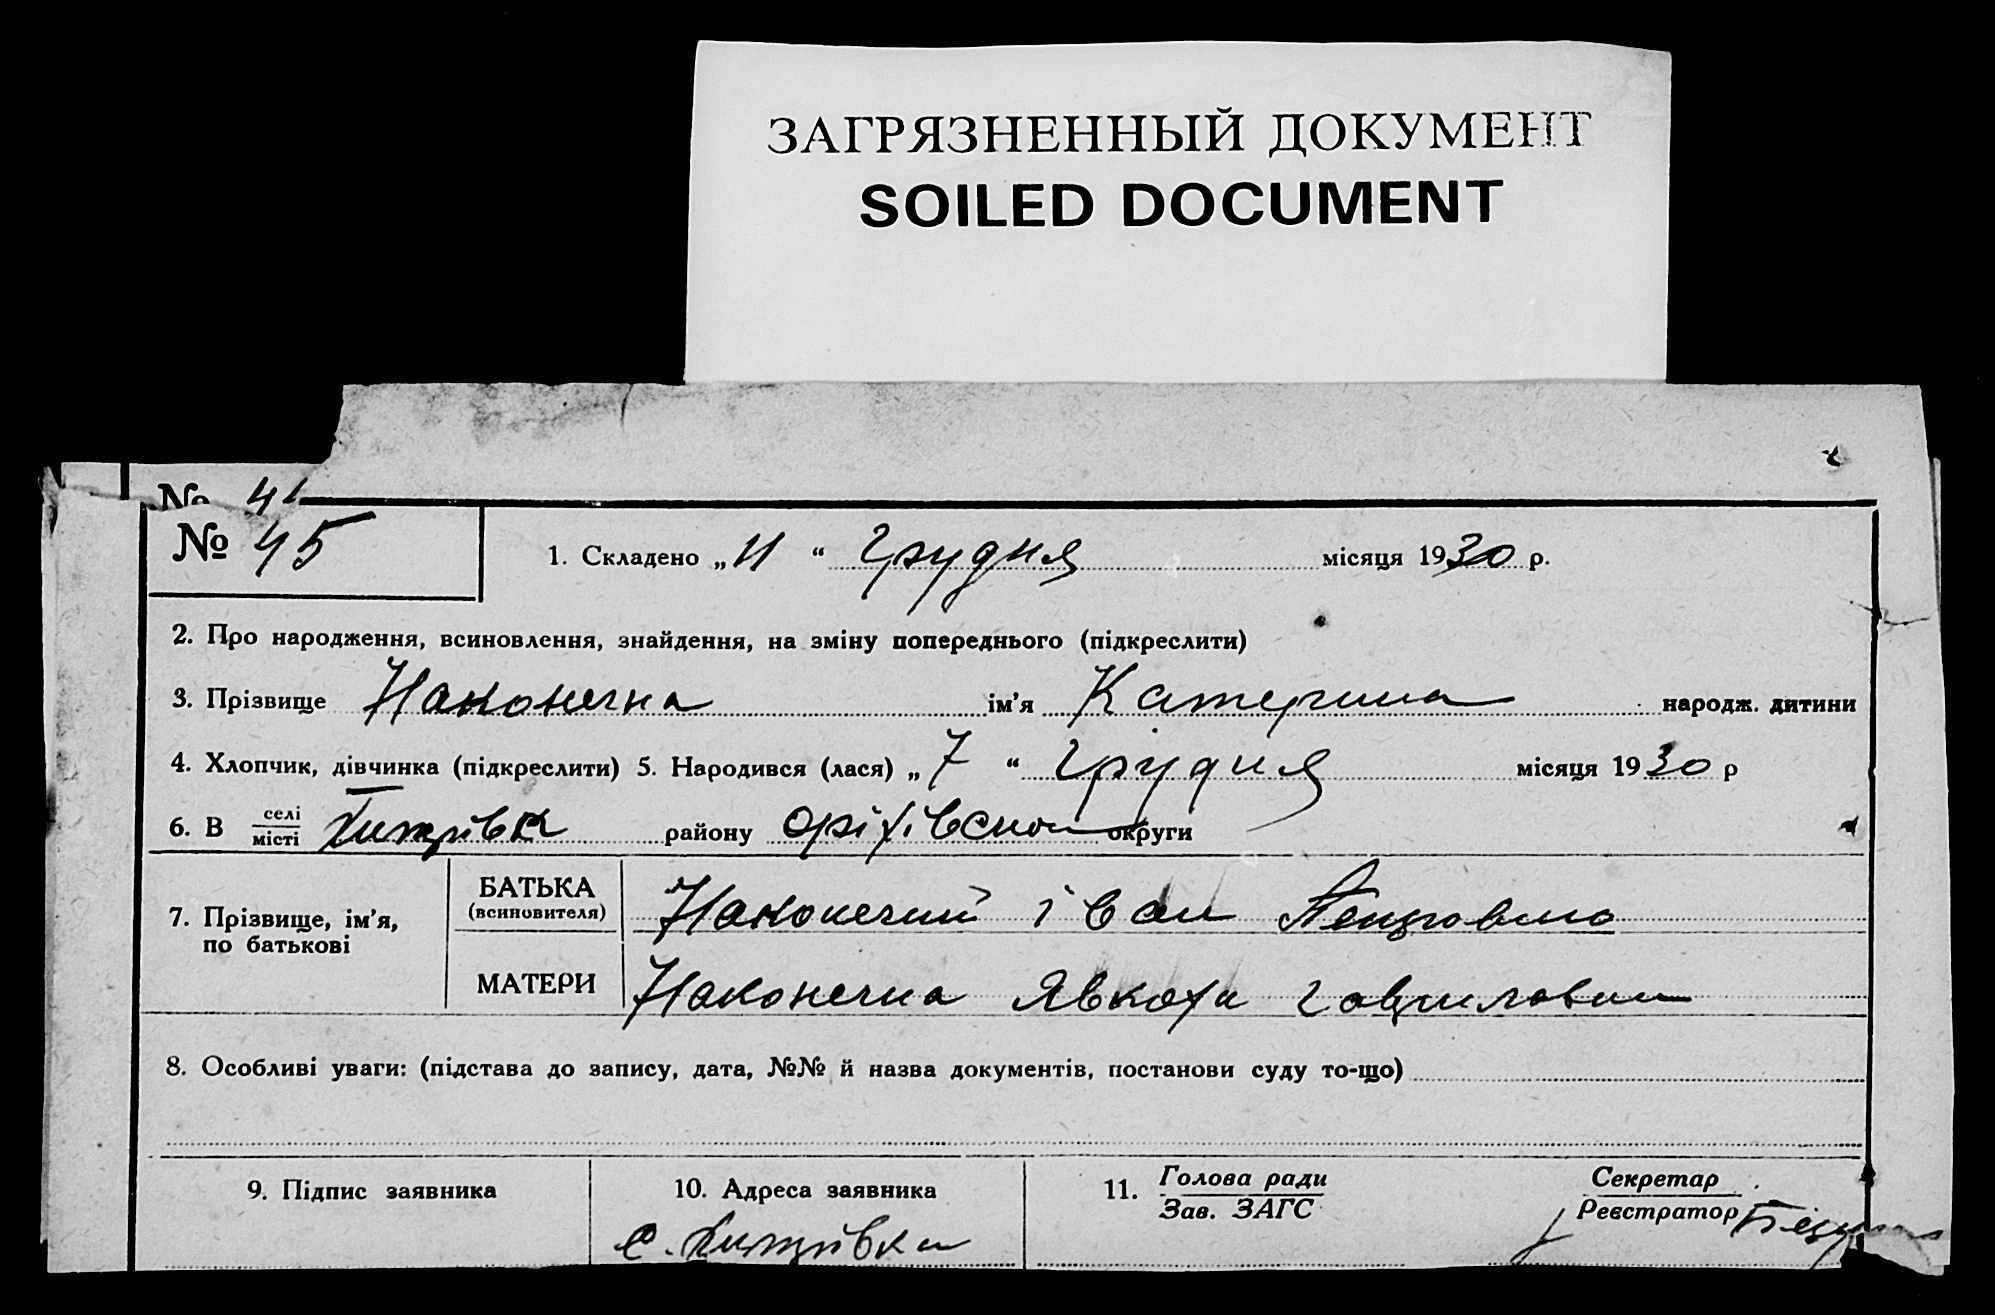 ЗАГРЯЗНЕННЫЙ ДОКУМЕНТ
SOILED DOCUMENT
№
№ 45
1. Складено „ 11 “ Грудня місяця 1930 р.
2. Про народження, всиновлення, знайдення, на зміну попереднього (підкреслити)
3. Прізвище Наконечна ім’я Катерина народж. дитини
4. Хлопчик, дівчинка (підкреслити) 5. Народився (лася) „ 7 “ Грудня місяця 1930 р
6. В селі
місті
району округи
7. Прізвище, ім’я,
по батькові
БАТЬКА
(всиновителя)
Наконечний Іван Петрович
МАТЕРИ
Наконечна Явкоха
8. Особливі уваги: (підстава до запису, дата, №№ й назва документів, постанови суду то-що)
9. Підпис заявника
10. Адреса заявника
с.
11. Голова ради
Зав. ЗАГС
Секретар
Реєстратор